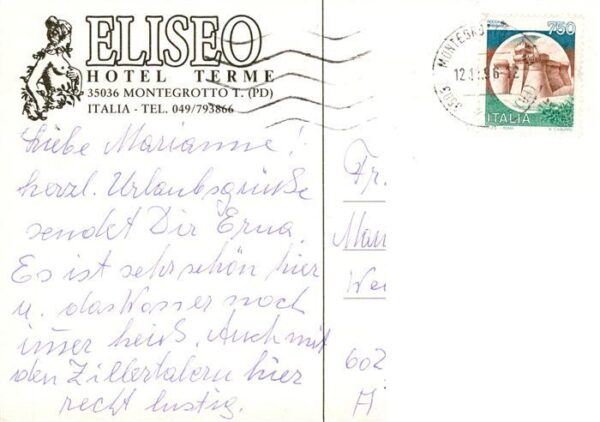 ELISEO
HOTEL TERME
35036 MONTEGROTTO T. (PD)
ITALIA - TEL. 049/793866
Liebe Marianne!
herzl. Urlaubsgrüße
sendet Dir Erna.
Es ist sehr schön hier
u. das Wasser noch
immer heiß. Auch mit
den Zillertalern hier
recht lustig.
750
ITALIA
MONTEG
12
96
Fr.
602
A